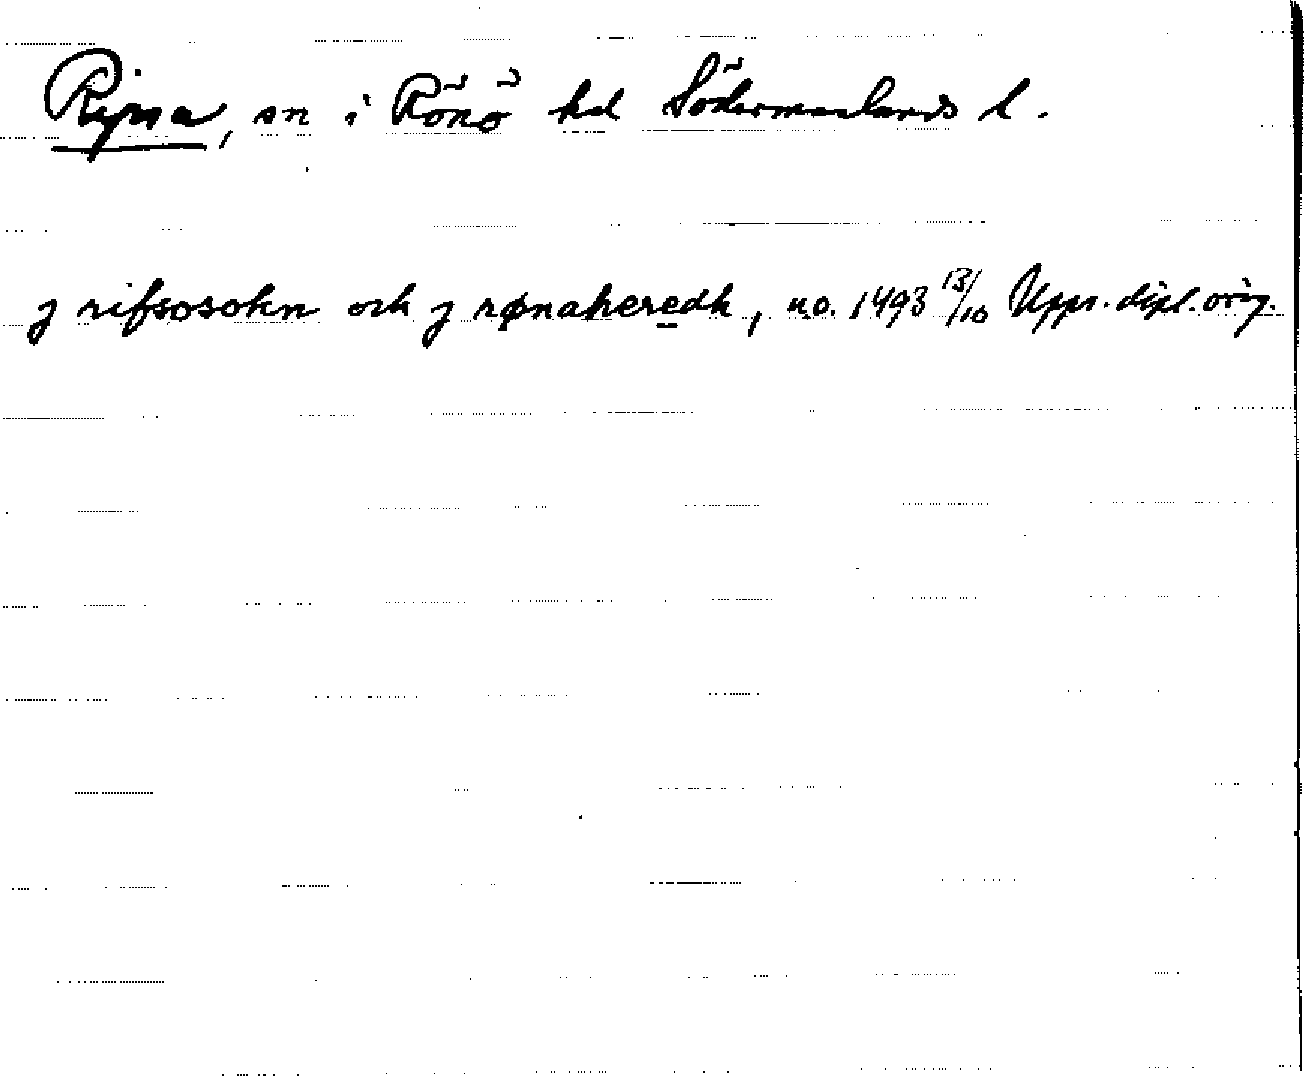 Ripsa, sn i Rönö hd Södermanlands l.
j rifsosokn och j rønaheredh, u.o. 1493 13/10 Upps. dipl. orig.